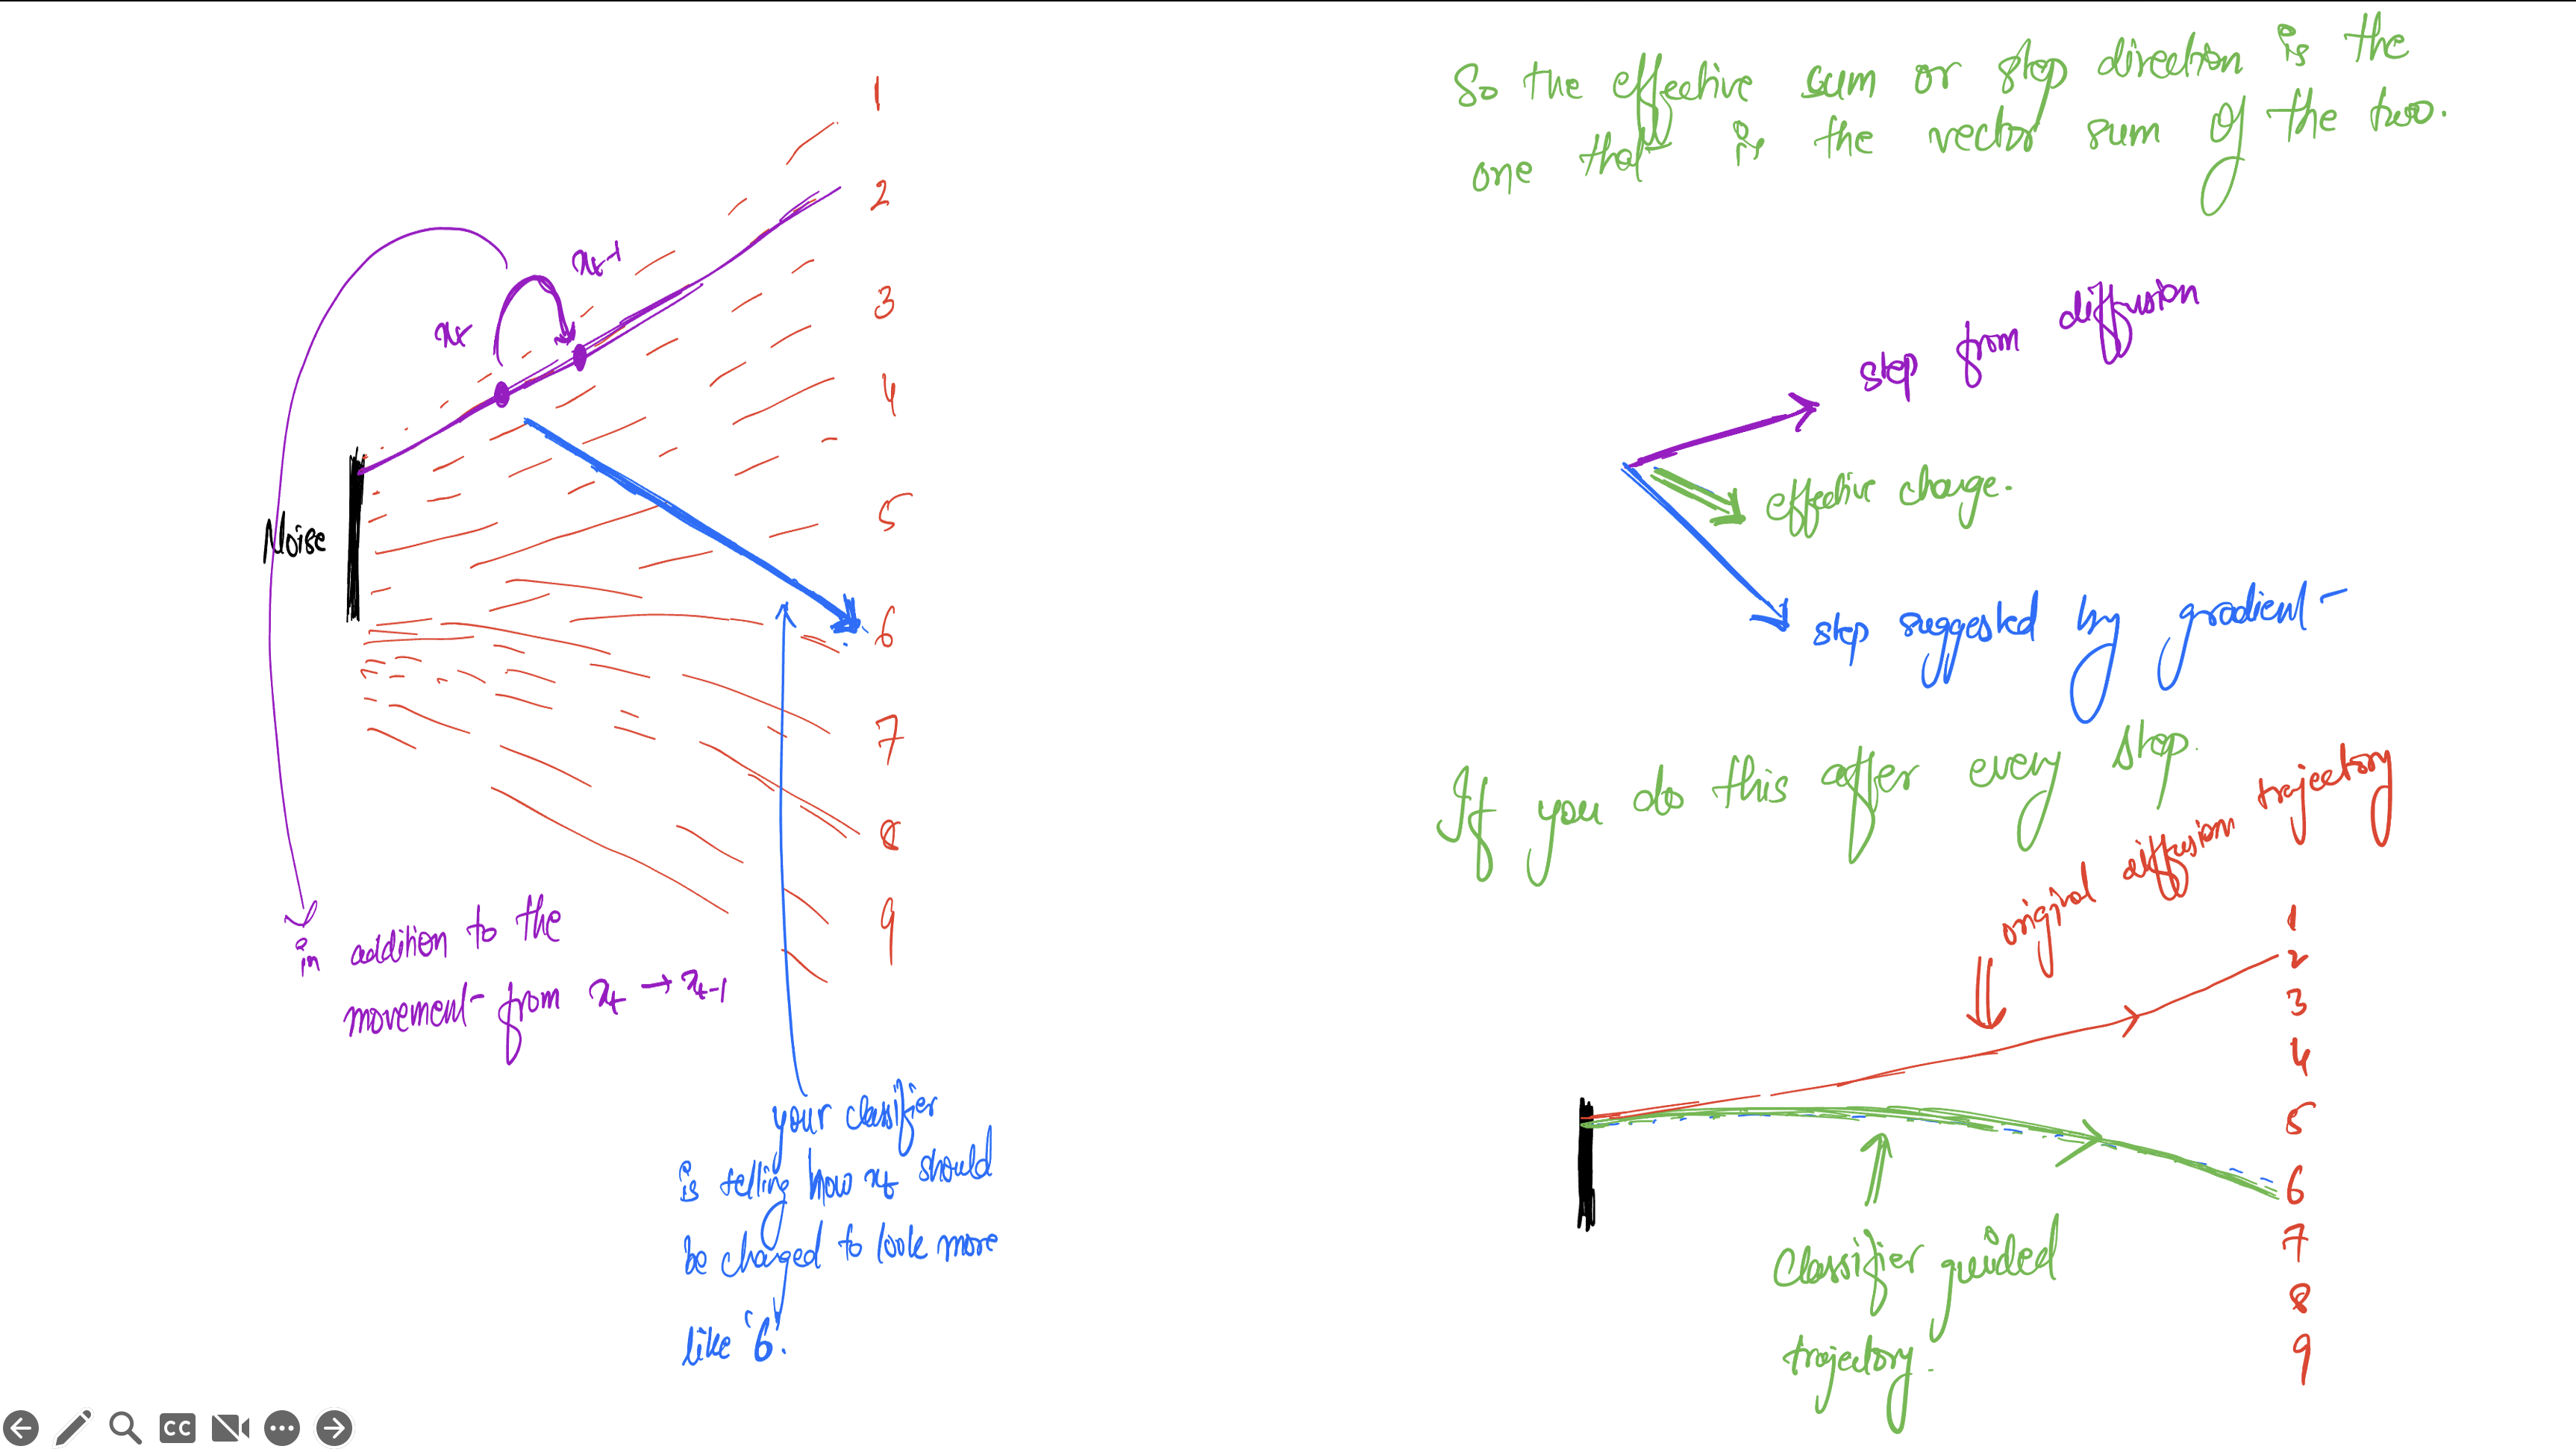 1
2
3
4
5
6
7
8
9
x_t
x_t-1
Noise
in addition to the
movement from x_t → x_t-1
your classifier
is telling how x_t should
be changed to look more
like '6'.
So the effective sum or step direction is the
one that is the vector sum of the two.
step from diffusion
effective change.
step suggested by gradient
If you do this after every step.
original diffusion trajectory
1
2
3
4
5
6
7
8
9
Classifier guided
trajectory.
CC